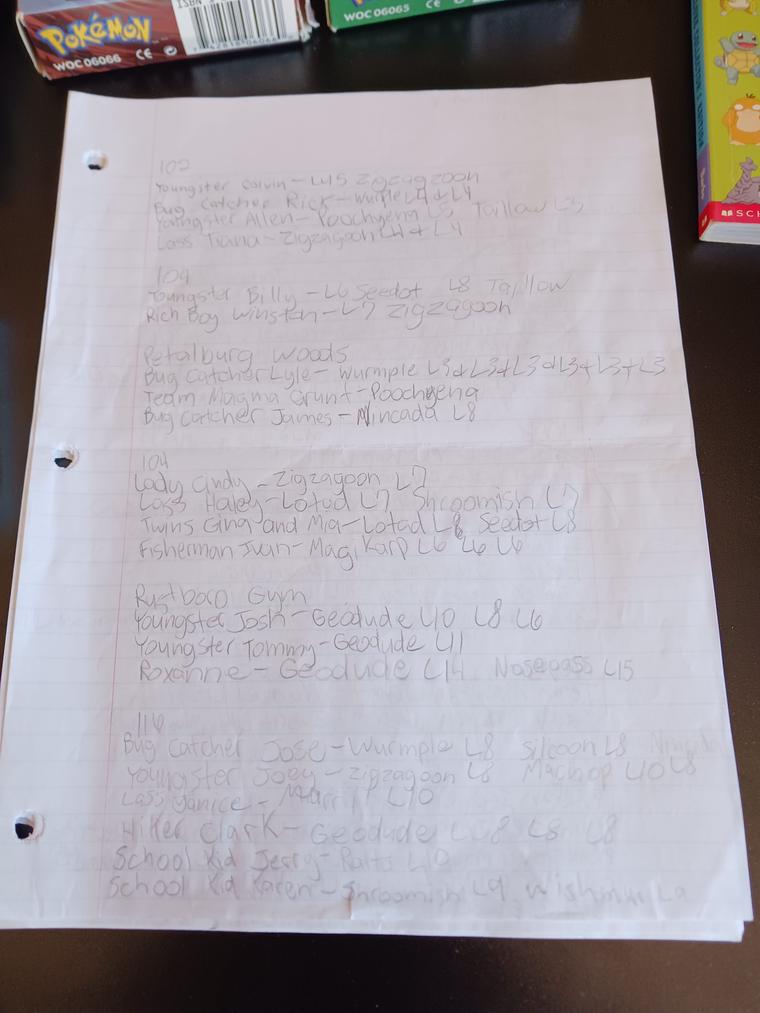 ISBN
POKéMON
WOC 06066 CE
WOC 06065 CE
SCH
102
Youngster Calvin - L45 Zigzagzoon
Bug Catcher Rick - Wurple L4 & L4
Youngster Allen - Poochyena L3 Taillow L3
Lass Tiana - Zigzagoon L4 + L4
104
Youngster Billy - L6 Seedot L8 Taillow
Rich Boy Winston - L7 Zigzagoon
Petalburg Woods
Bug Catcher Lyle - Wurmple L3 & L3 & L3 & L3 + L3 + L3
Team Magma Grunt - Poochyena
Bug Catcher James - Nincada L8
104
Lady Cindy - Zigzagoon L7
Lass Haley - Lotad L7 Shroomish L7
Twins Gina and Mia - Lotad L8 Seedot L8
Fisherman Ivan - Magikarp L6 L6 L6
Rustboro Gym
Youngster Josh - Geodude L10 L8 L6
Youngster Tommy - Geodude L11
Roxanne - Geodude L14 Nosepass L15
116
Bug Catcher Jose - Wurmple L8 Silcoon L8 Nincada
Youngster Joey - Zigzagoon L8 Machop L10 L8
Lass Janice - L10
Hiker Clark - Geodude L8 L8 L8
School Kid Jerry - Ralts
School Kid Karen - Shroomish L9, Whismur L9